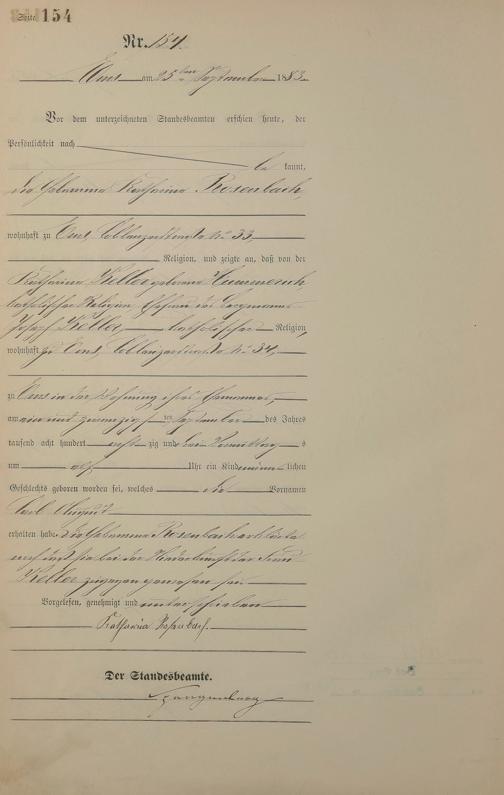 Seite 154
Nr. 154.
Ems am 25ten September 1883
Vor dem unterzeichneten Standesbeamten erschien heute, der
Persönlichkeit nach
be kannt,
die Hebamme Katharina Rosenbach,
wohnhaft zu Ems, Coblenzerstraße No 33,
Religion, und zeigte an, daß von der
Katharina Keller geborene
katholischer Religion, Ehefrau des Bergmanns
Joseph Keller, katholischer Religion,
wohnhaft zu Ems, Coblenzerstraße No 34,
zu Ems in der Wohnung ihres Ehemannes,
am ein und zwanzigsten September des Jahres
tausend acht hundert acht zig und drei Vormittags
um elf Uhr ein Kind männlichen
Geschlechts geboren worden sei, welches die Vornamen
Carl August
erhalten habe. Die Hebamme Rosenbach erklärte
noch daß sie bei der Niederkunft der Frau
Keller zugegen gewesen sei
Vorgelesen, genehmigt und unterschrieben
Katharina Rosenbach.
Der Standesbeamte.